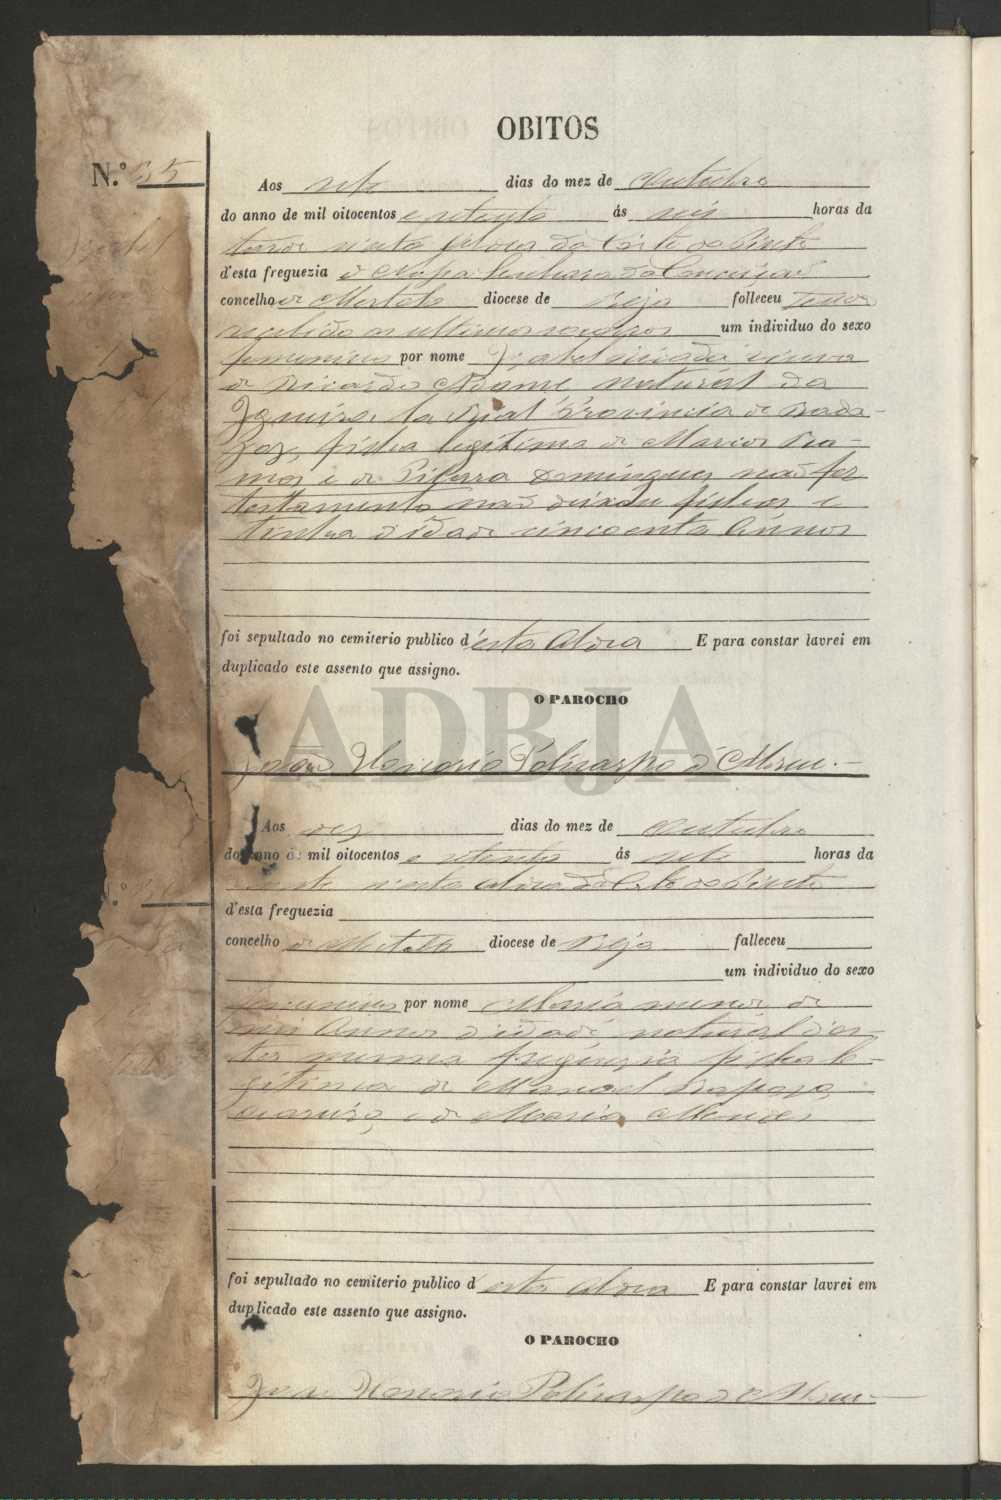 OBITOS
N.º 35
Aos sete dias do mez de Outubro
do anno de mil oitocentos e setenta ás seis horas da
tarde n'esta Aldeia da Corte do Pinto
d'esta freguezia de Nossa Senhora da Conceição
concelho de Mertola diocese de Beja falleceu tendo
recebido os ultimos um individuo do sexo
femenino por nome Izabel viuva
de Ricardo natural da
la Real Provincia de Bada-
joz, filha legitima de Marcos Ra-
mos e de Domingues não fez
testamento não deixou filhos e
tinha d'idade cincoenta Annos
foi sepultado no cemiterio publico d'esta Aldeia E para constar lavrei em
duplicado este assento que assigno.
O PAROCHO
ADBJA
João Honorio Policarpo d'Abreu.
Aos dez dias do mez de Outubro
do anno de mil oitocentos e setenta ás sete horas da
n'esta Aldeia da Corte do Pinto
d'esta freguezia
concelho de Mertola diocese de Beja falleceu
um individuo do sexo
femenino por nome Maria menor de
Annos d'idade natural d'es-
ta mesma freguezia filha le-
gitima de Manoel Raposo
e de Maria Mendes
foi sepultado no cemiterio publico d'esta Aldeia E para constar lavrei em
duplicado este assento que assigno.
O PAROCHO
João Honorio Policarpo d'Abreu.